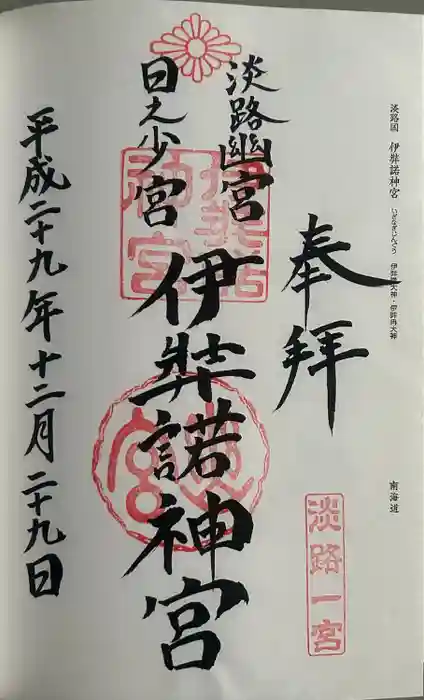 淡路国 伊弉諾神宮 いざなぎじんぐう 伊弉諾大神・伊弉冉大神
南海道
奉拝
淡路一宮
淡路幽宮
日之少宮
伊弉諾神宮
伊弉諾神宮
幽宮
平成二十九年十二月二十九日